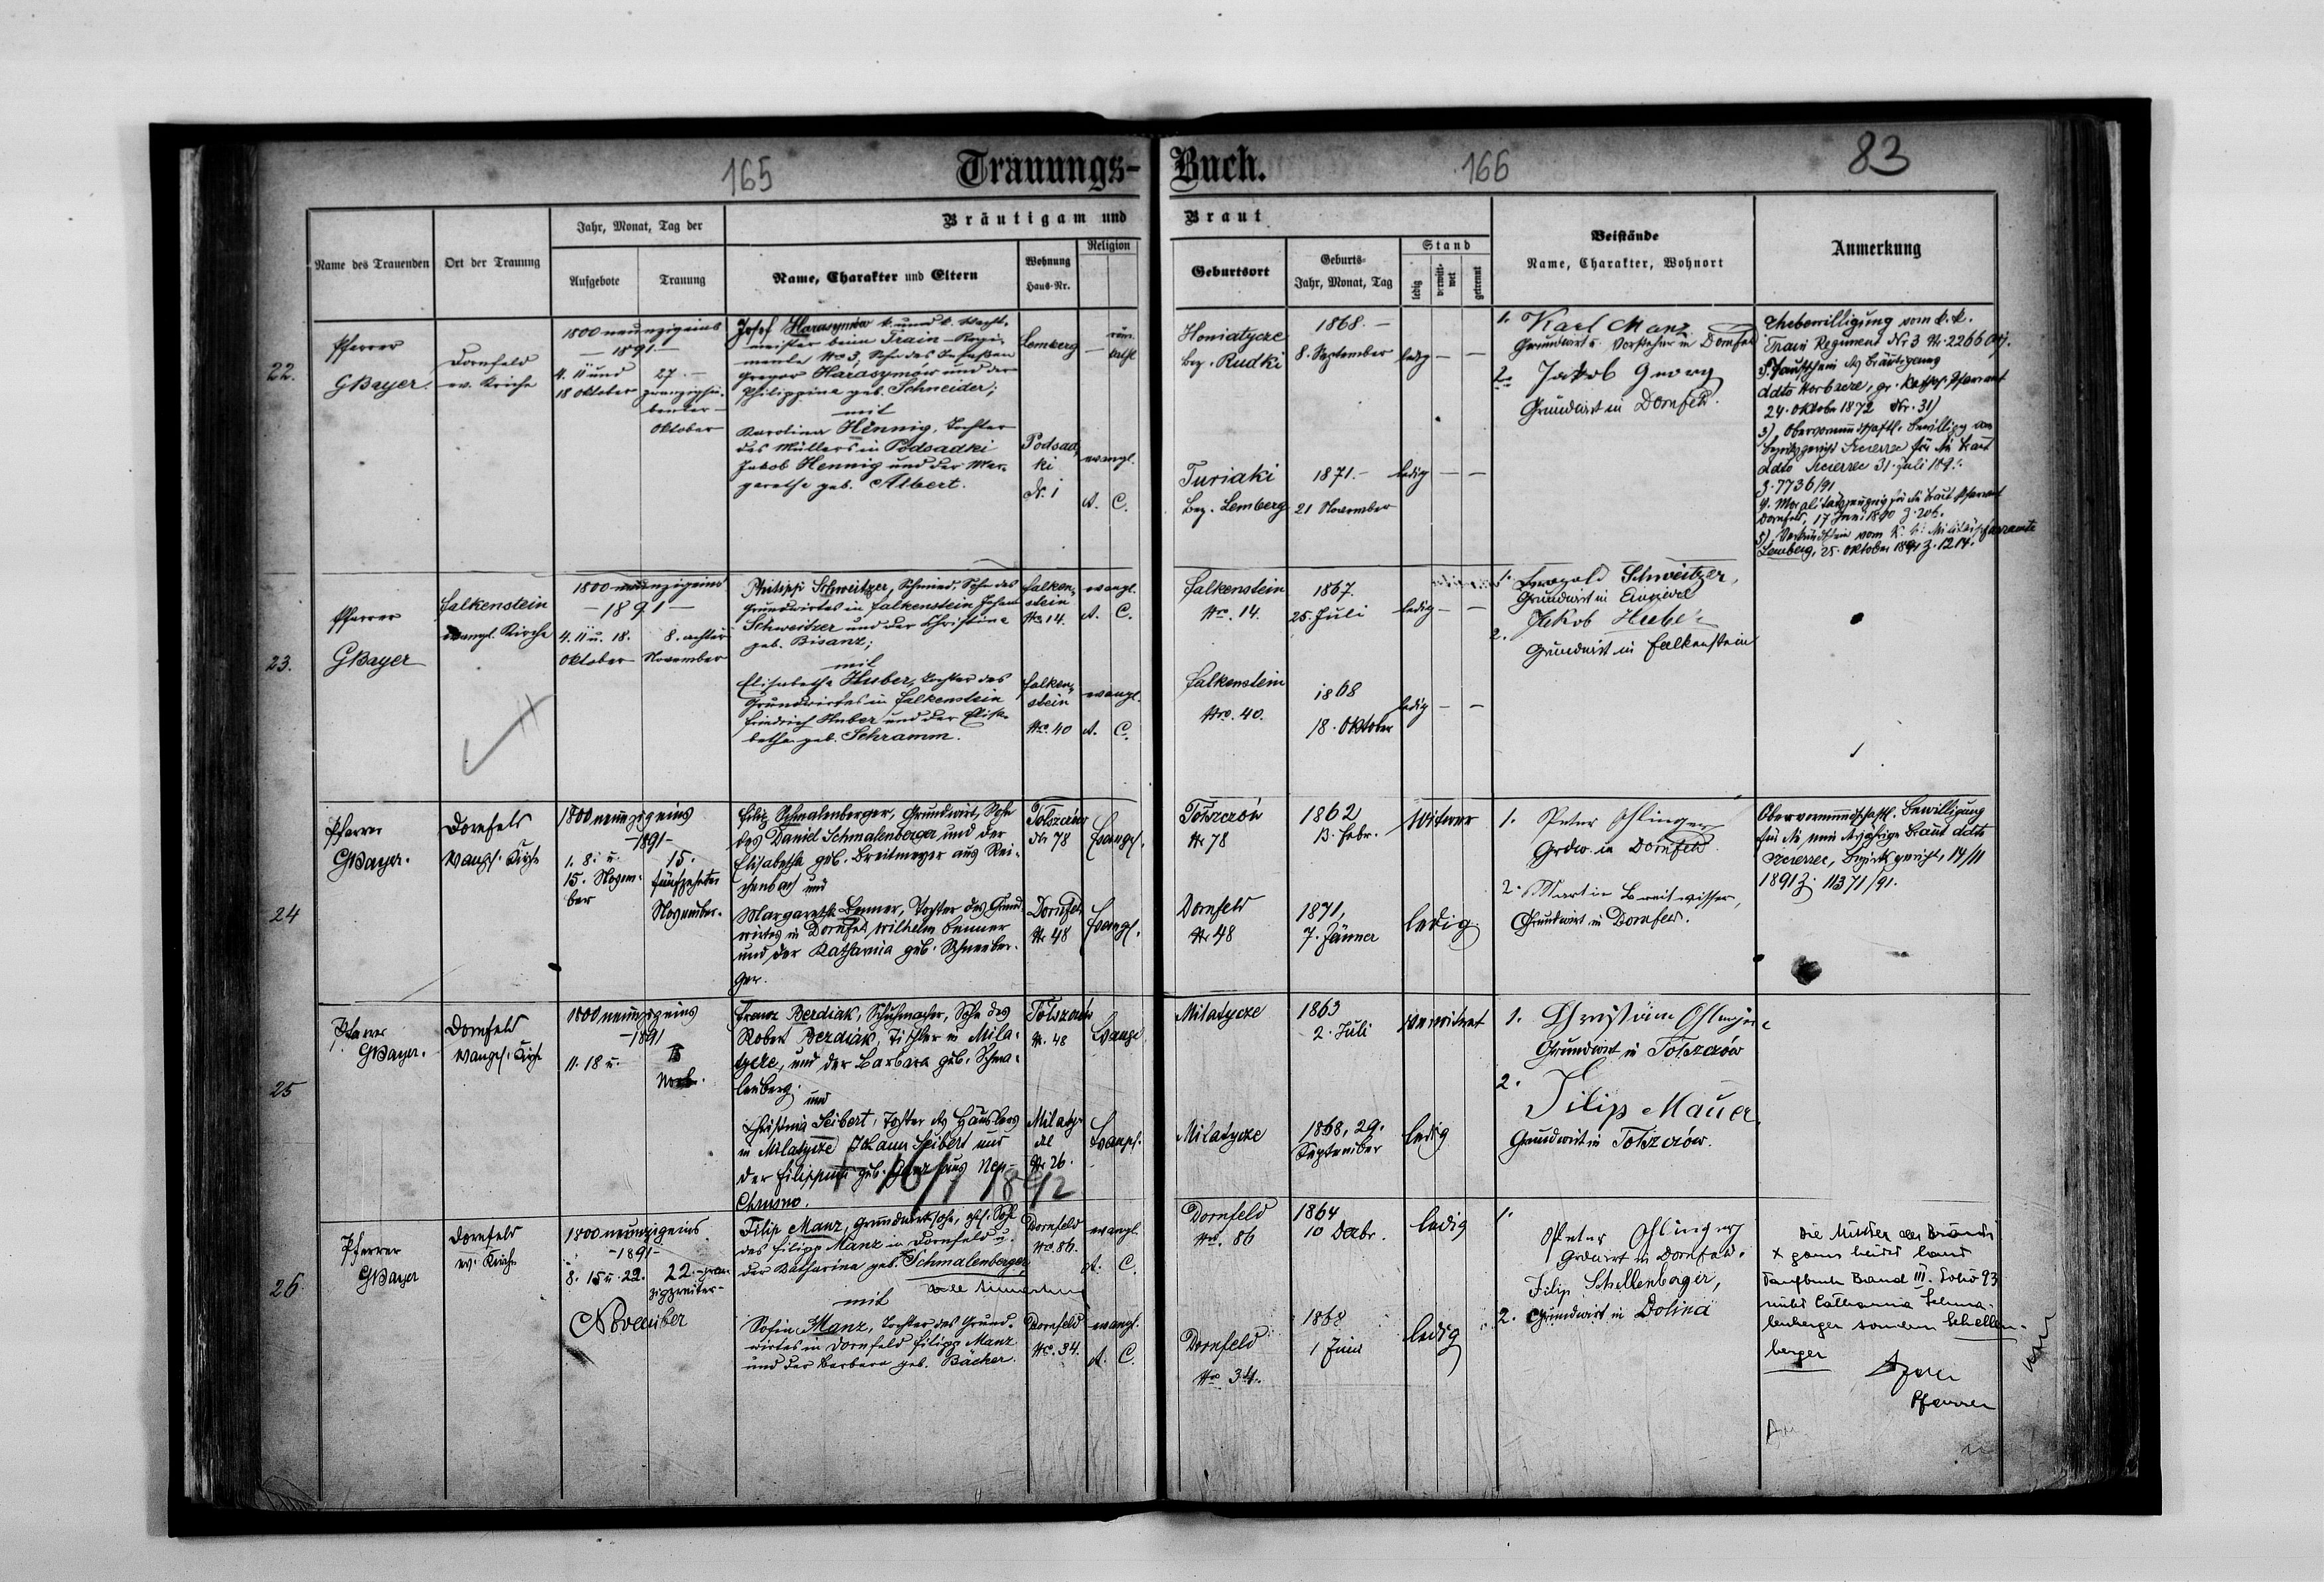 165
Trauungs-Buch.
166
83
Name des Trauenden
Ort der Trauung
Jahr, Monat, Tag der
Aufgebote
Trauung
Bräutigam und Braut
Name, Charakter und Eltern
Wohnung
Haus-Nr.
Religion
Geburtsort
Geburts-
Jahr, Monat, Tag
Stand
ledig
verwitt-
wet
getrennt
Beistände
Name, Charakter, Wohnort
Anmerkung
22.
Pfarrer
GBayer.
Dornfeld
ev. Kirche
1800 neunzigeins
– 1891 –
4. 11 und
18 Oktober
27. –
Oktober
Josef Harasymów k. und k. Wacht-
meister beim Train-Regi-
mente No 3, Sohn des
Gregor Harasymów und der
Philippine geb. Schneider;
mit
Karolina Hennig, Tochter
des Müllers in Podsadki
Jakob Hennig und der Mar-
garetha geb. Albert.
Lemberg
röm.
kath
Podsad-
ki
Nr. 1
evangl.
A. C.
Honiatycze
Bez. Rudki
1868. –
8. September
ledig – –
Turiaki
Bez. Lemberg
1871. –
21 November
ledig – –
1. Karl Manz
Grundwirt u. Vorsteher in Dornfeld
2. Jakob Georg
Grundwirt in Dornfeld.
Ehebewilligung vom k. k.
Train Regiment Nr. 3 Nr. 2266
2) Taufschein des Bräutigams
ddto gr. kathol. Pfarramt
24. Oktober 1872 Nr. 31)
3) Obervormundschaftl. Bewilligung vom
Bezirksgericht Szczerzec für die Braut
ddto Szczerzec 31. Juli 189
Z. 7736/91
Dornfeld, 17
5) Verkündschein vom k. k. Militärpfarramte
Lemberg, 25. Oktober 1891 Z. 1214.
23.
Pfarrer
GBayer
Falkenstein
evangl. Kirche
1800 neunzigeins
– 1891 –
4. 11 u. 18.
Oktober
8. achter
November
Philipp Schweitzer, Schmied, Sohn des
Grundwirtes in Falkenstein Johann
Schweitzer und der Christine
geb. Bisanz;
mit
Elisabetha Huber, Tochter des
Grundwirtes in Falkenstein
Friedrich Huber und der Elisa-
betha geb. Schramm.
Falken-
stein
No 14.
evangl.
A. C.
Falken-
stein
No 40
evangl.
A. C.
Falkenstein
Nro. 14.
1867.
25. Juli
ledig – –
Falkenstein
Nro. 40.
1868
18. Oktober
ledig – –
1. Leopold Schweitzer,
Grundwirt in Einsiedel
2. Jakob Huber
Grundwirt in Falkenstein
24
Pfarrer
GBayer.
Dornfeld
evangel. Kirche
1800 neunzigeins
– 1891 –
1. 8. u.
15. Novem-
ber
15.
fünfzehnter
November.
Filip Schmalenberger, Grundwirt, Sohn
des Daniel Schmalenberger und der
Elisabetha geb. Breitmeyer aus Rei-
chenbach und
Margaretha Benner, Tochter des Grund-
wirtes in Dornfeld Wilhelm Benner
und der Katharina geb. Schneeber-
ger.
Tołszczów
Nr 78
Evangel.
Dornfeld
Nr 48
Evangel.
Tołszczów
Nr 78
1862
13. Febr.
Witwer
Dornfeld
Nr 48
1871,
7. Jänner
ledig
1. Peter Ohlinger
Grdw. in Dornfeld
2. Martin Breitwisser,
Grundwirt in Dornfeld.
Obervormundschaftl. Bewilligung
für die minderjährige Braut ddto
Szczerzec, Bezirksgericht, 14/11
1891 Z. 11371/91.
25
Pfarrer
GBayer.
Dornfeld
evangel. Kirche
1800 neunzigeins
– 1891
11. 18 u.
Franz Berdiak, Schuhmacher, Sohn des
Robert Berdiak, Tischler in Mila-
tycze, und der Barbara geb. Schma-
lenberg;
und
Christina Seibert, Tochter des Häuslers
in Milatycze Johann Seibert und
der Filippina geb. Manz aus Neu-
Chrusno.
16/1 1892
Tołszczów
Nr. 48
Evangel
Milaty-
cze
Nr 26.
Evangel.
Milatycze
1863
2. Juli
verwitwet
Milatycze
1868, 29.
September
ledig
1. Christian Ohlinger
Grundwirt in Tołszczów
2.
Filip Mauer
Grundwirt in Tołszczów.
26.
Pfarrer
GBayer
Dornfeld
ev. Kirche
1800 neunzigeins.
– 1891 –
8. 15 u. 22.
November
22. zwan-
zigzweiter
Filip Manz, Grundwirtssohn, ehl. Sohn
des Filipp Manz in Dornfeld u.
der Katharina geb. Schmalenberger,
vide Anmerkung
mit
Sofia Manz, Tochter des Grund-
wirtes in Dornfeld Filipp Manz
und der Barbara geb. Bächer.
Dornfeld
No. 86.
evangl.
A. C.
Dornfeld
No. 34.
evangl.
A. C.
Dornfeld
No. 86
1864
10 Dezbr.
ledig
Dornfeld
Nro 34.
1868
1 Juni
ledig
1.
Peter Ohlinger
Grdwirt in Dornfeld.
Filip Schellenberger,
2. Grundwirt in Dolina
Die Mutter des Bräuti-
gams heisst laut
Taufbuch Band III. Folio 93
nicht Catharina Schma-
lenberger sondern Schellen-
berger
Pfarrer